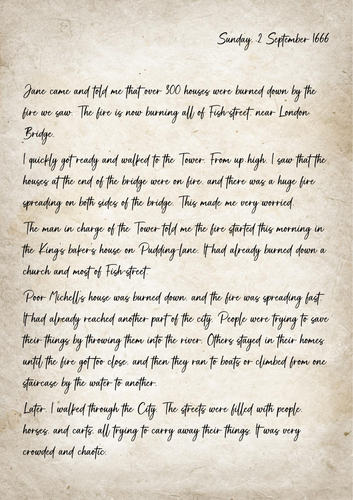 Sunday, 2 September 1666
Jane came and told me that over 300 houses were burned down by the
fire we saw. The fire is now burning all of Fish-street, near London
Bridge.
I quickly got ready and walked to the Tower. From up high, I saw that the
houses at the end of the bridge were on fire, and there was a huge fire
spreading on both sides of the bridge. This made me very worried.
The man in charge of the Tower told me the fire started this morning in
the King's baker's house on Pudding-lane. It had already burned down a
church and most of Fish-street.
Poor Michell's house was burned down, and the fire was spreading fast.
It had already reached another part of the city. People were trying to save
their things by throwing them into the river. Others stayed in their homes
until the fire got too close, and then they ran to boats or climbed from one
staircase by the water to another.
Later, I walked through the City. The streets were filled with people,
horses, and carts, all trying to carry away their things. It was very
crowded and chaotic.